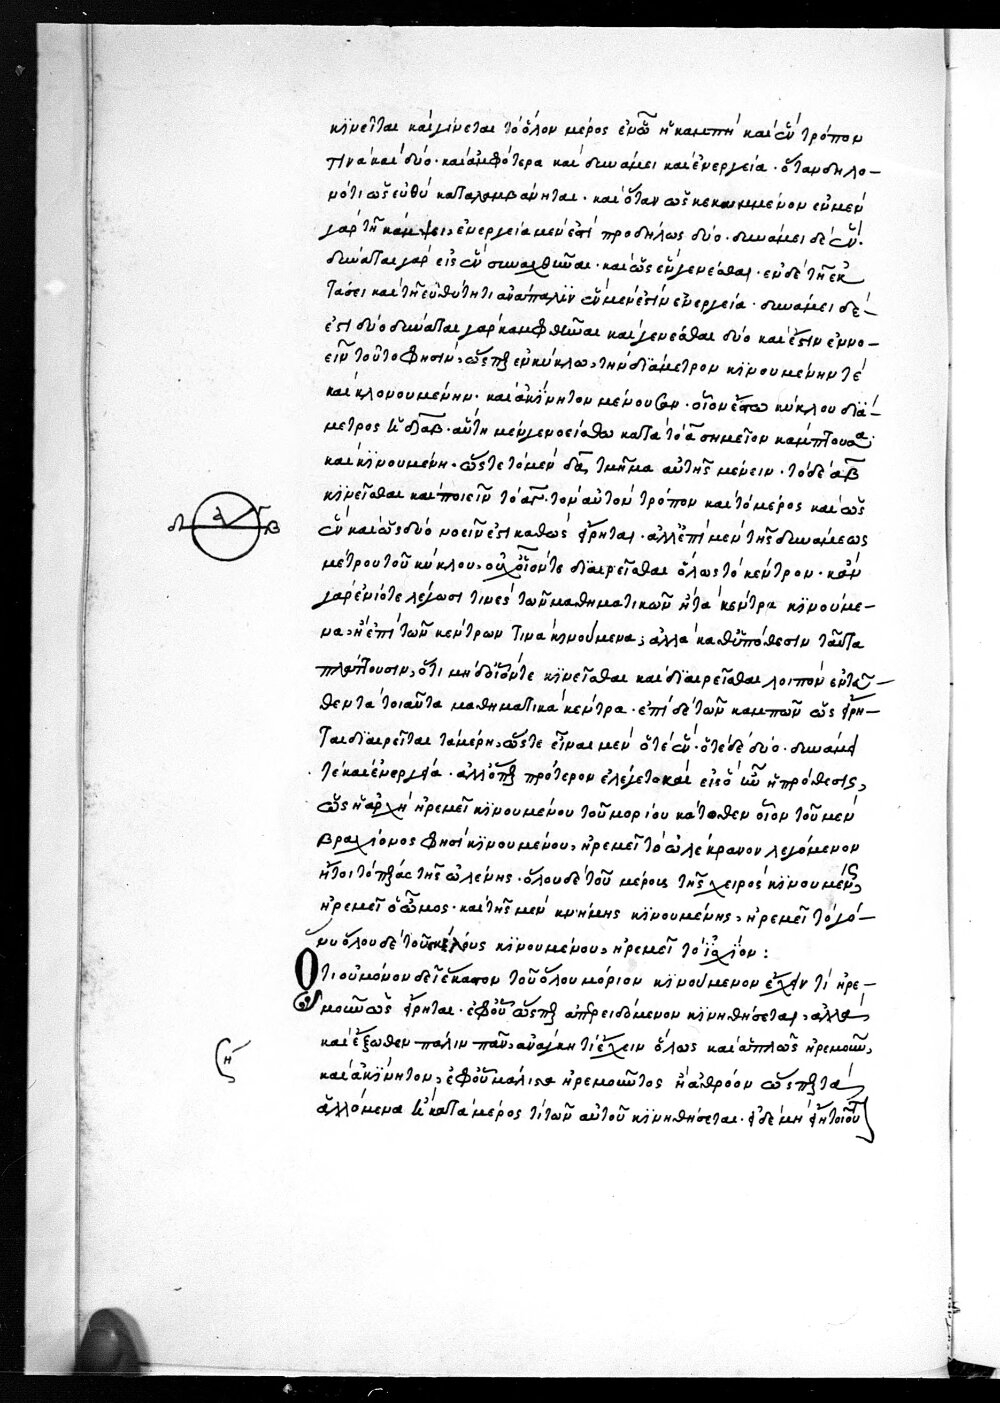 κινεῖται καὶ γίνεται τὸ ὅλον μέρος ἐν ᾧ ἡ καμπὴ καὶ ἓν τρόπον
τινὰ καὶ δύο· καὶ ἀμφότερα καὶ δυνάμει καὶ ἐνεργεία· ὅταν δηλο-
νότι ὡς εὐθὺ καταλαμβάνηται· καὶ ὅταν ὡς κεκαμμένον ἐν μὲν
γὰρ τῆ κάμψει, ἐνεργεία μέν ἐστι προδήλως δύο· δυνάμει δὲ ἕν·
δύναται γὰρ εἰς ἓν συναχθῆναι· καὶ ὡς ἓν γενέσθαι· ἐν δὲ τῆ ἐκ
τάσει καὶ τῆ εὐθύτητι ἀνάπαλιν ἓν μέν ἐστιν ἐνεργεία· δυνάμει δέ
ἐστι δύο δύναται γὰρ καμφθῆναι καὶ γενέσθαι δύο καὶ ἔστιν ἐννο-
εῖν τοῦτο φησὶν, ὥσπερ ἐν κύκλω, τὴν διάμετρον κινουμένην τὲ
καὶ κλονουμένην· καὶ ἀκίνητον μένουσαν· οἷον ἔστω κύκλου διά-
μετρος ἡ δαβ· αὕτη μὲν νοείσθω κατὰ τὸ α σημεῖον κάμπτουσα
καὶ κινουμένη· ὥστε τὸ μὲν δα τμῆμα αὐτῆς μένειν· τὸ δὲ αβ
κινεῖσθαι καὶ ποιεῖν τὸ αγ· τὸν αὐτὸν τρόπον καὶ τὸ μέρος καὶ ὡς
ἓν καὶ ὡς δύο νοεῖν ἔστι καθὼς εἴρηται· ἀλλ' ἐπὶ μὲν τῆς δυνάμεως
μέτρου τοῦ κύκλου, οὐχ οἷόντε διαιρεῖσθαι ὅλως τὸ κέντρον· κἂν
γὰρ ἐνίοτε λέγωσί τινες τῶν μαθηματικῶν ἢ τὰ κέντρα κινούμε-
να, ἢ ἐπὶ τῶν κέντρων τινὰ κινούμενα, ἀλλὰ καθ' ὑπόθεσιν ταῦτα
πλάττουσιν, ὅτι μηδ' οἷόντε κινεῖσθαι καὶ διαιρεῖσθαι λοιπὸν ἐντεῦ-
θεν τὰ τοιαῦτα μαθηματικὰ κέντρα· ἐπὶ δὲ τῶν καμπῶν ὡς εἴρη-
ται διαιρεῖται τὰ μέρη, ὥστε εἶναι μὲν ὁτὲ ἕν· ὁτὲ δὲ δύο· δυνάμει
τὲ καὶ ἐνεργεία· ἀλλ' ὅπερ πρότερον ἐλέγετο καὶ εἰς ὃ ἦν ἡ πρόθεσις,
ὡς ἡ ἀρχὴ ἠρεμεῖ κινουμένου τοῦ μορίου κάτωθεν οἷον τοῦ μὲν
βραχίονος φησὶ κινουμένου, ἠρεμεῖ τὸ ὠλέκρανον λεγόμενον
ἤτοι τὸ πέρας τῆς ὠλένης· ὅλου δὲ τοῦ μέρους τῆς χειρὸς κινουμένης,
ἠρεμεῖ ὁ ὦμος· καὶ τῆς μὲν κνήμης κινουμένης, ἠρεμεῖ τὸ γό-
νυ ὅλου δὲ τοῦ σκέλους κινουμένου, ἠρεμεῖ τὸ ἰσχίον:
Ὅτι οὐ μόνον δεῖ ἕκαστον τοῦ ὅλου μόριον κινούμενον ἔχειν τί ἠρε-
μοῦν ὡς εἴρηται· ἐφ' οὗ ὥσπερ ἀπερειδόμενον κινηθήσεται, ἀλλὰ
καὶ ἔξωθεν πάλιν πᾶν, ἀνάγκη τὶ ἔχειν ὅλως καὶ ἁπλῶς ἠρεμοῦν,
καὶ ἀκίνητον, ἐφ' οὗ μάλιστα ἠρεμοῦντος ἢ ἀθρόον ὥσπερ τὰ
ἁλλόμενα ἢ κατὰ μέρος τὶ τῶν αὐτοῦ κινηθήσεται· εἰ δὲ μὴ εἴη τοιοῦ
δ α γ β
η